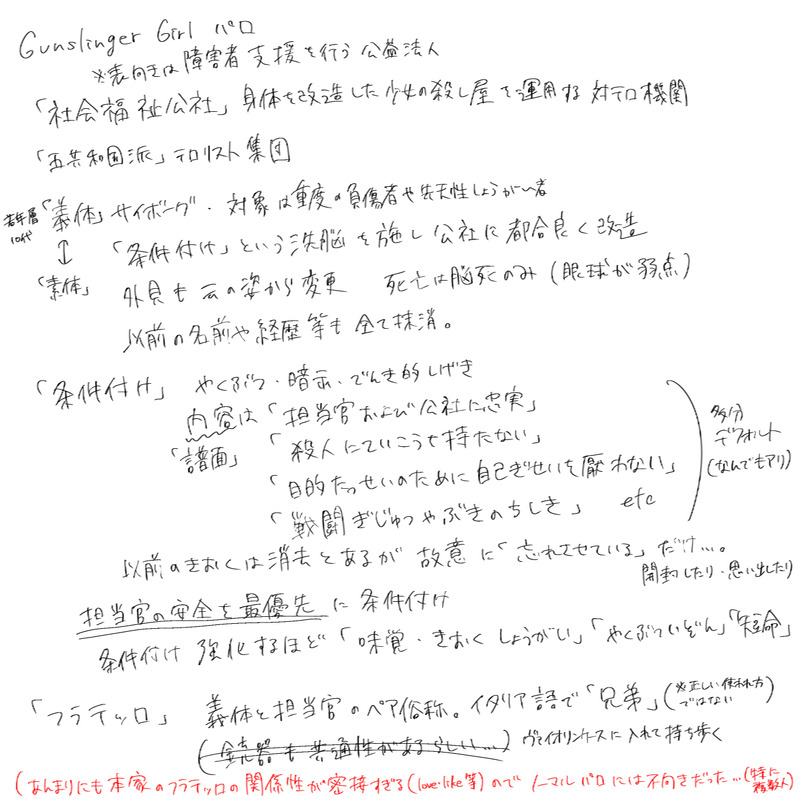 Gunslinger Girl パロ
※表向きは障害者支援を行う公益法人
「社会福祉公社」身体を改造した少女の殺し屋を運用する対テロ機関
「五共和国派」テロリスト集団
若年層
10代
「義体」サイボーグ・対象は重度の負傷者や先天性しょうがい者
↕
「条件付け」という洗脳を施し公社に都合良く改造
「素体」 外見も元の姿から変更 死亡は脳死のみ(眼球が弱点)
以前の名前や経歴等も全て抹消。
「条件付け」 やくぶつ・暗示・でんき的しげき
内容は「担当官および公社に忠実」
「譜面」 「殺人にていこうを持たない」
「目的たっせいのために自己ぎせいを厭わない」
「戦闘ぎじゅつやぶきのちしき」 etc
多分
デフォルト
(なんでもアリ)
以前のきおくは消去とあるが 故意に「忘れさせている」だけ…。
開封したり・思い出したり
担当官の安全を最優先に条件付け
条件付け 強化するほど「味覚・きおくしょうがい」「やくぶついぞん」「短命」
「フラテッロ」 義体と担当官のペア俗称。イタリア語で「兄弟」(※正しい使われ方ではない)
(銃器も共通性があるらしい…) ヴァイオリンケースに入れて持ち歩く
(あんまりにも本家のフラテッロの関係性が密接すぎる(love・like等)のでノーマルパロには不向きだった…(特に複数人)